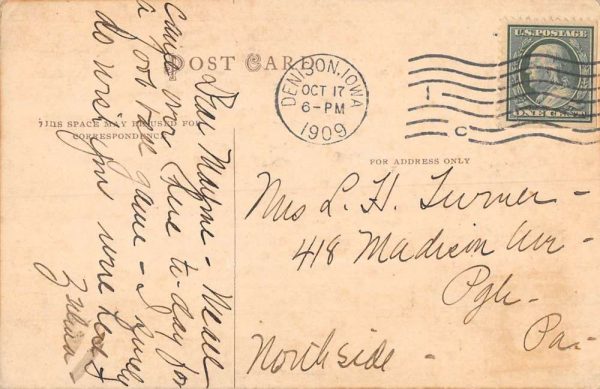 POST CARD
THIS SPACE MAY BE USED FOR
CORRESPONDENCE
DENISON, IOWA
OCT 17
6-PM
1909
1
C
U.S. POSTAGE
ONE CENT
FOR ADDRESS ONLY
Mrs L. H. Turner -
418 Madison Ave -
Pgh -
Pa -
Northside -
Dear Mayme - We all
came over here to-day for
a foot ball game - I surely
do wish you were here